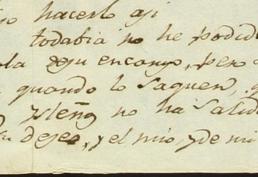 hacerlo asi
todabia no he podid
de su encargo, pero
quando lo saquen,
no ha salid
deseo, y el mio, y de mi